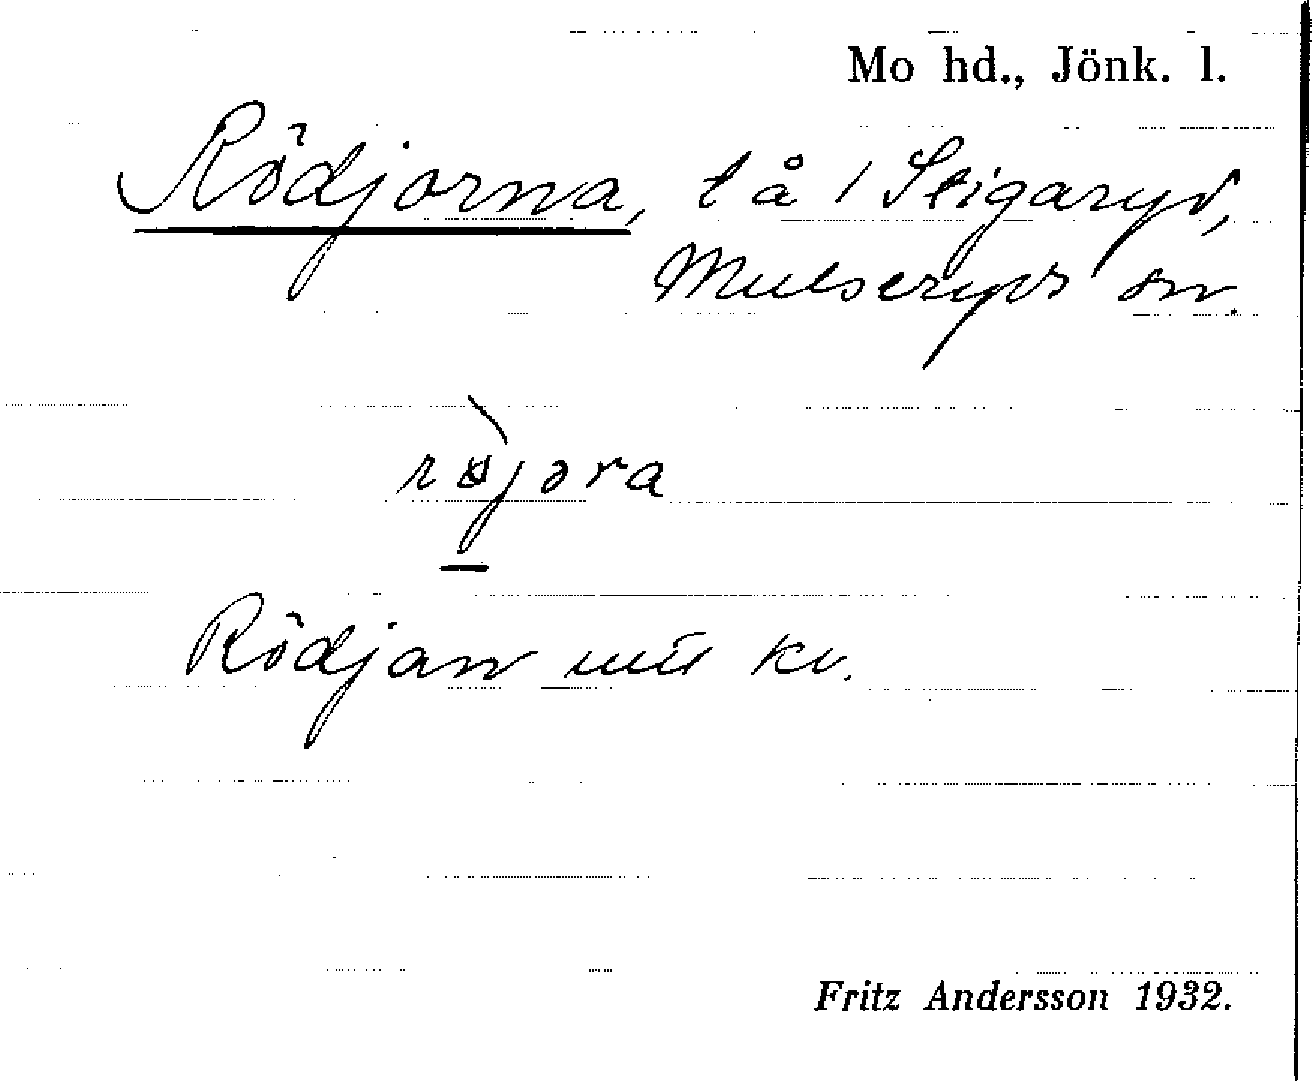 Mo hd., Jönk. l.
Rödjorna, t å 1 Stigaryd,
Mulseryds sn.
Rödjan mts kv.
Fritz Andersson 1932.